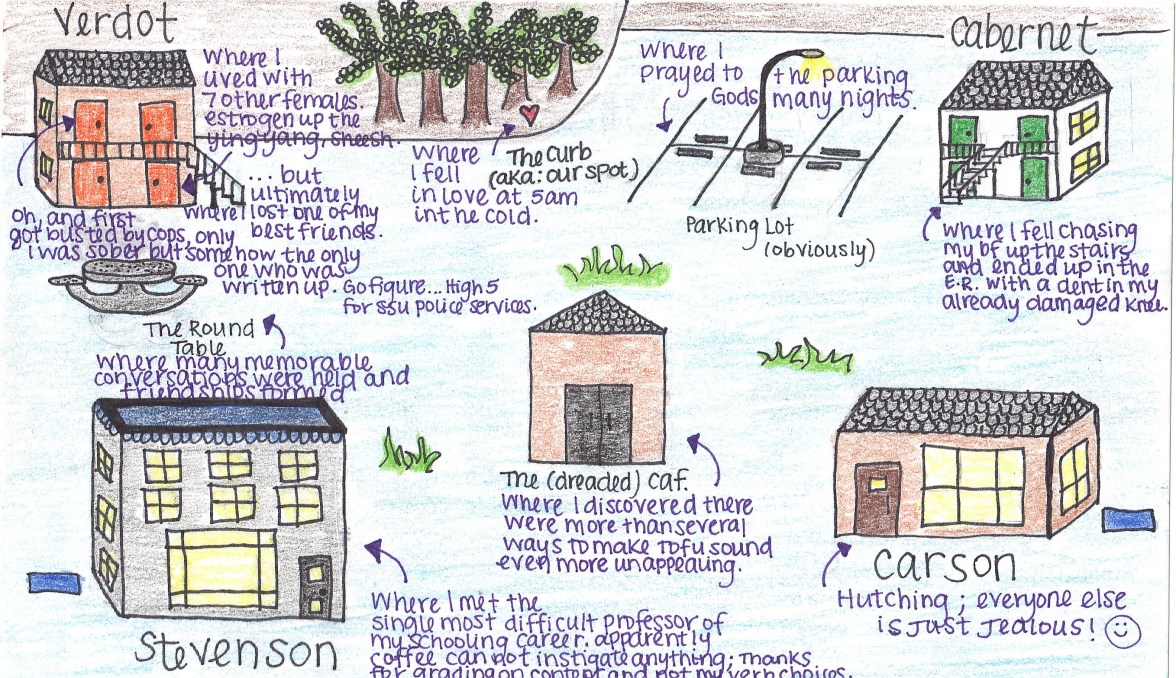 Verdot
Where I
lived with
7 other females.
estrogen up the
ying yang, sheesh.
... but
ultimately
where I lost one of my
best friends.
oh, and first
got busted by cops, only
I was sober but somehow the only
one who was
written up. Go figure... High 5
for SSU police services.
The Round
Table
where many memorable
conversations were held and
friendships formed
Where
I fell
in love at 5am
in the cold.
The curb
(aka: our spot)
Where I
prayed to the parking
Gods many nights.
Parking Lot
(obviously)
Cabernet
where I fell chasing
my bf up the stairs
and ended up in the
E.R. with a dent in my
already damaged knee.
The (dreaded) Caf.
Where I discovered there
were more than several
ways to make Tofu sound
even more unappealing.
Carson
Hutching; everyone else
is just jealous!
Stevenson
Where I met the
single most difficult professor of
my schooling career. apparently
coffee cannot instigate anything; Thanks
for grading on content and not my verb choices.